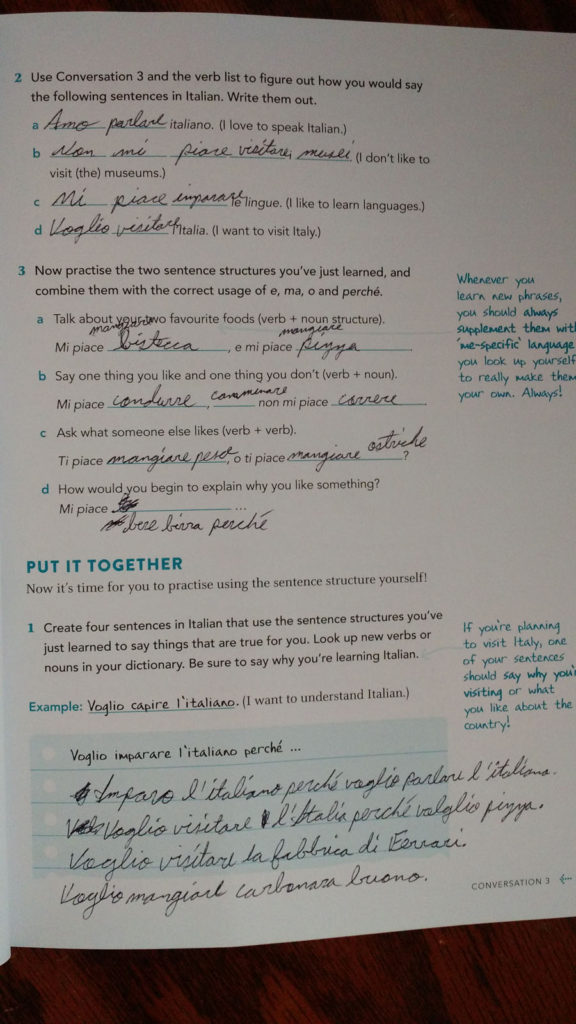 2 Use Conversation 3 and the verb list to figure out how you would say
the following sentences in Italian. Write them out.
a Amo parlare italiano. (I love to speak Italian.)
b Non mi piace visitare i musei. (I don't like to
visit (the) museums.)
c Mi piace imparare le lingue. (I like to learn languages.)
d Voglio visitare l'Italia. (I want to visit Italy.)
3 Now practise the two sentence structures you've just learned, and
combine them with the correct usage of e, ma, o and perché.
a Talk about your two favourite foods (verb + noun structure).
mangiare mangiare
Mi piace bistecca, e mi piace pizza.
b Say one thing you like and one thing you don't (verb + noun).
camminare
Mi piace condurre, non mi piace correre.
c Ask what someone else likes (verb + verb).
ostriche
Ti piace mangiare pesce, o ti piace mangiare?
d How would you begin to explain why you like something?
Mi piace ...
bere birra perché
Whenever you
learn new phrases,
you should always
supplement them with
'me-specific' language
you look up yourself
to really make them
your own. Always!
PUT IT TOGETHER
Now it's time for you to practise using the sentence structure yourself!
1 Create four sentences in Italian that use the sentence structures you've
just learned to say things that are true for you. Look up new verbs or
nouns in your dictionary. Be sure to say why you're learning Italian.
Example: Voglio capire l'italiano. (I want to understand Italian.)
If you're planning
to visit Italy, one
of your sentences
should say why you're
visiting or what
you like about the
country!
Voglio imparare l'italiano perché ...
Imparo l'italiano perché voglio parlare l'italiano.
Voglio visitare l'Italia perché valglio pizza.
Voglio visitare la fabbrica di Ferrari.
Voglio mangiare carbonara buono.
CONVERSATION 3